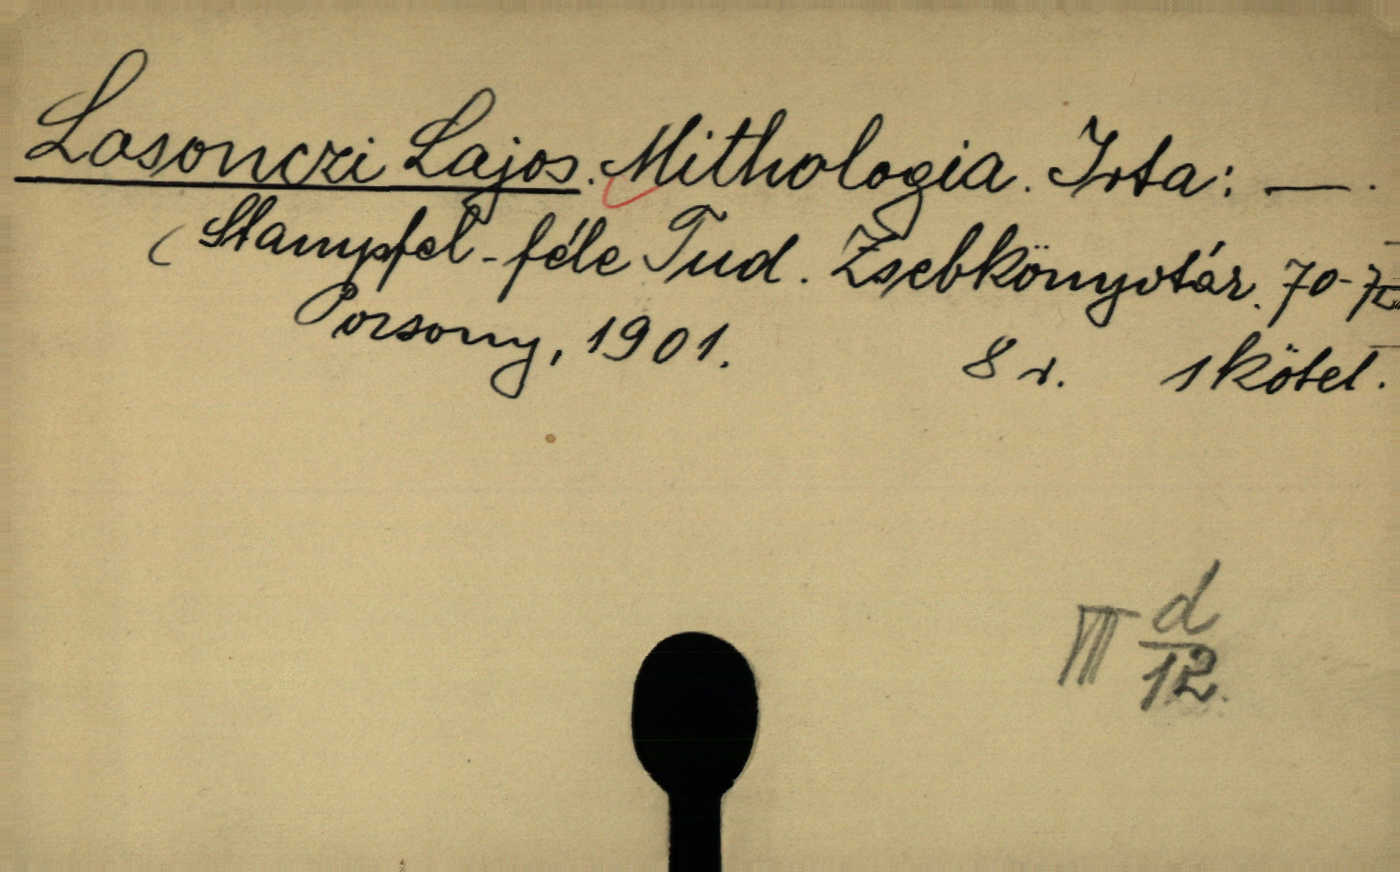 Lasonczi Lajos. Mithologia. Irta: —.
(Stampfel-féle Tud. Zsebkönyvtár. 70-
Porsony, 1901. 8 r. 1 kötet.
III d
12.